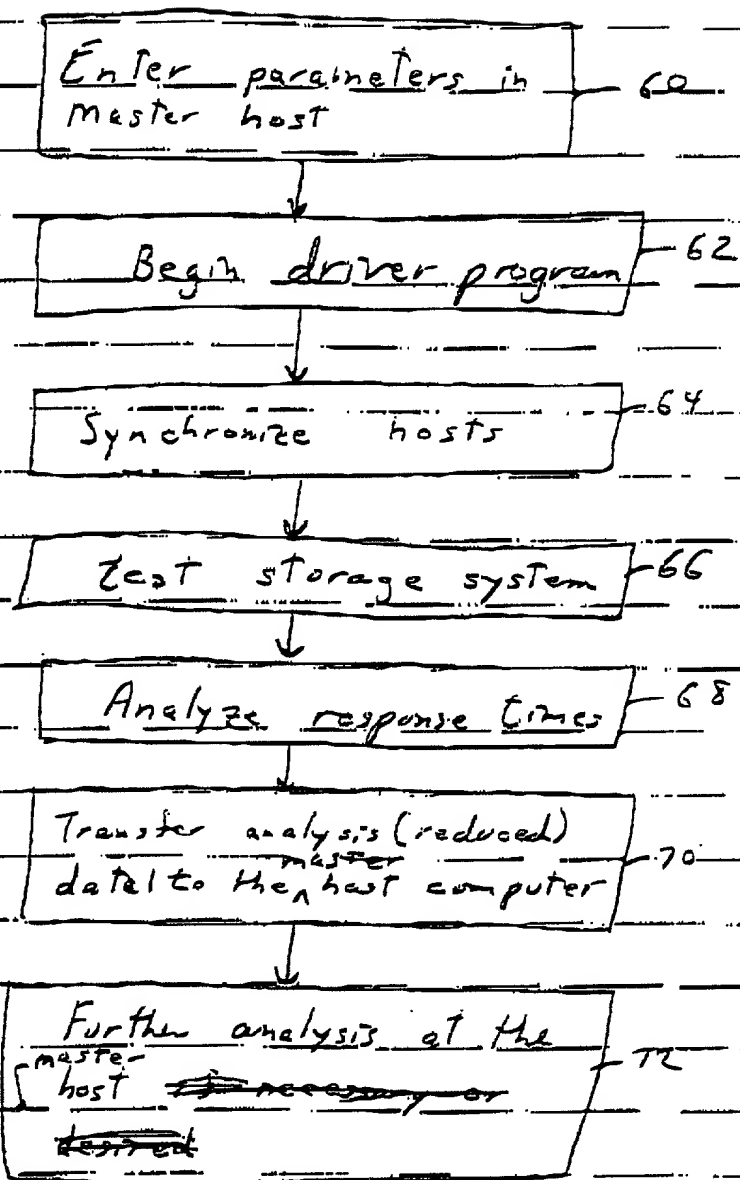 Enter parameters in 60
master host
Begin driver program 62
Synchronize hosts 64
Test storage system 66
Analyze response times 68
Transfer analysis (reduced) 70
master
data to the ^ host computer
Further analysis at the 72
master
host if necessary or
desired